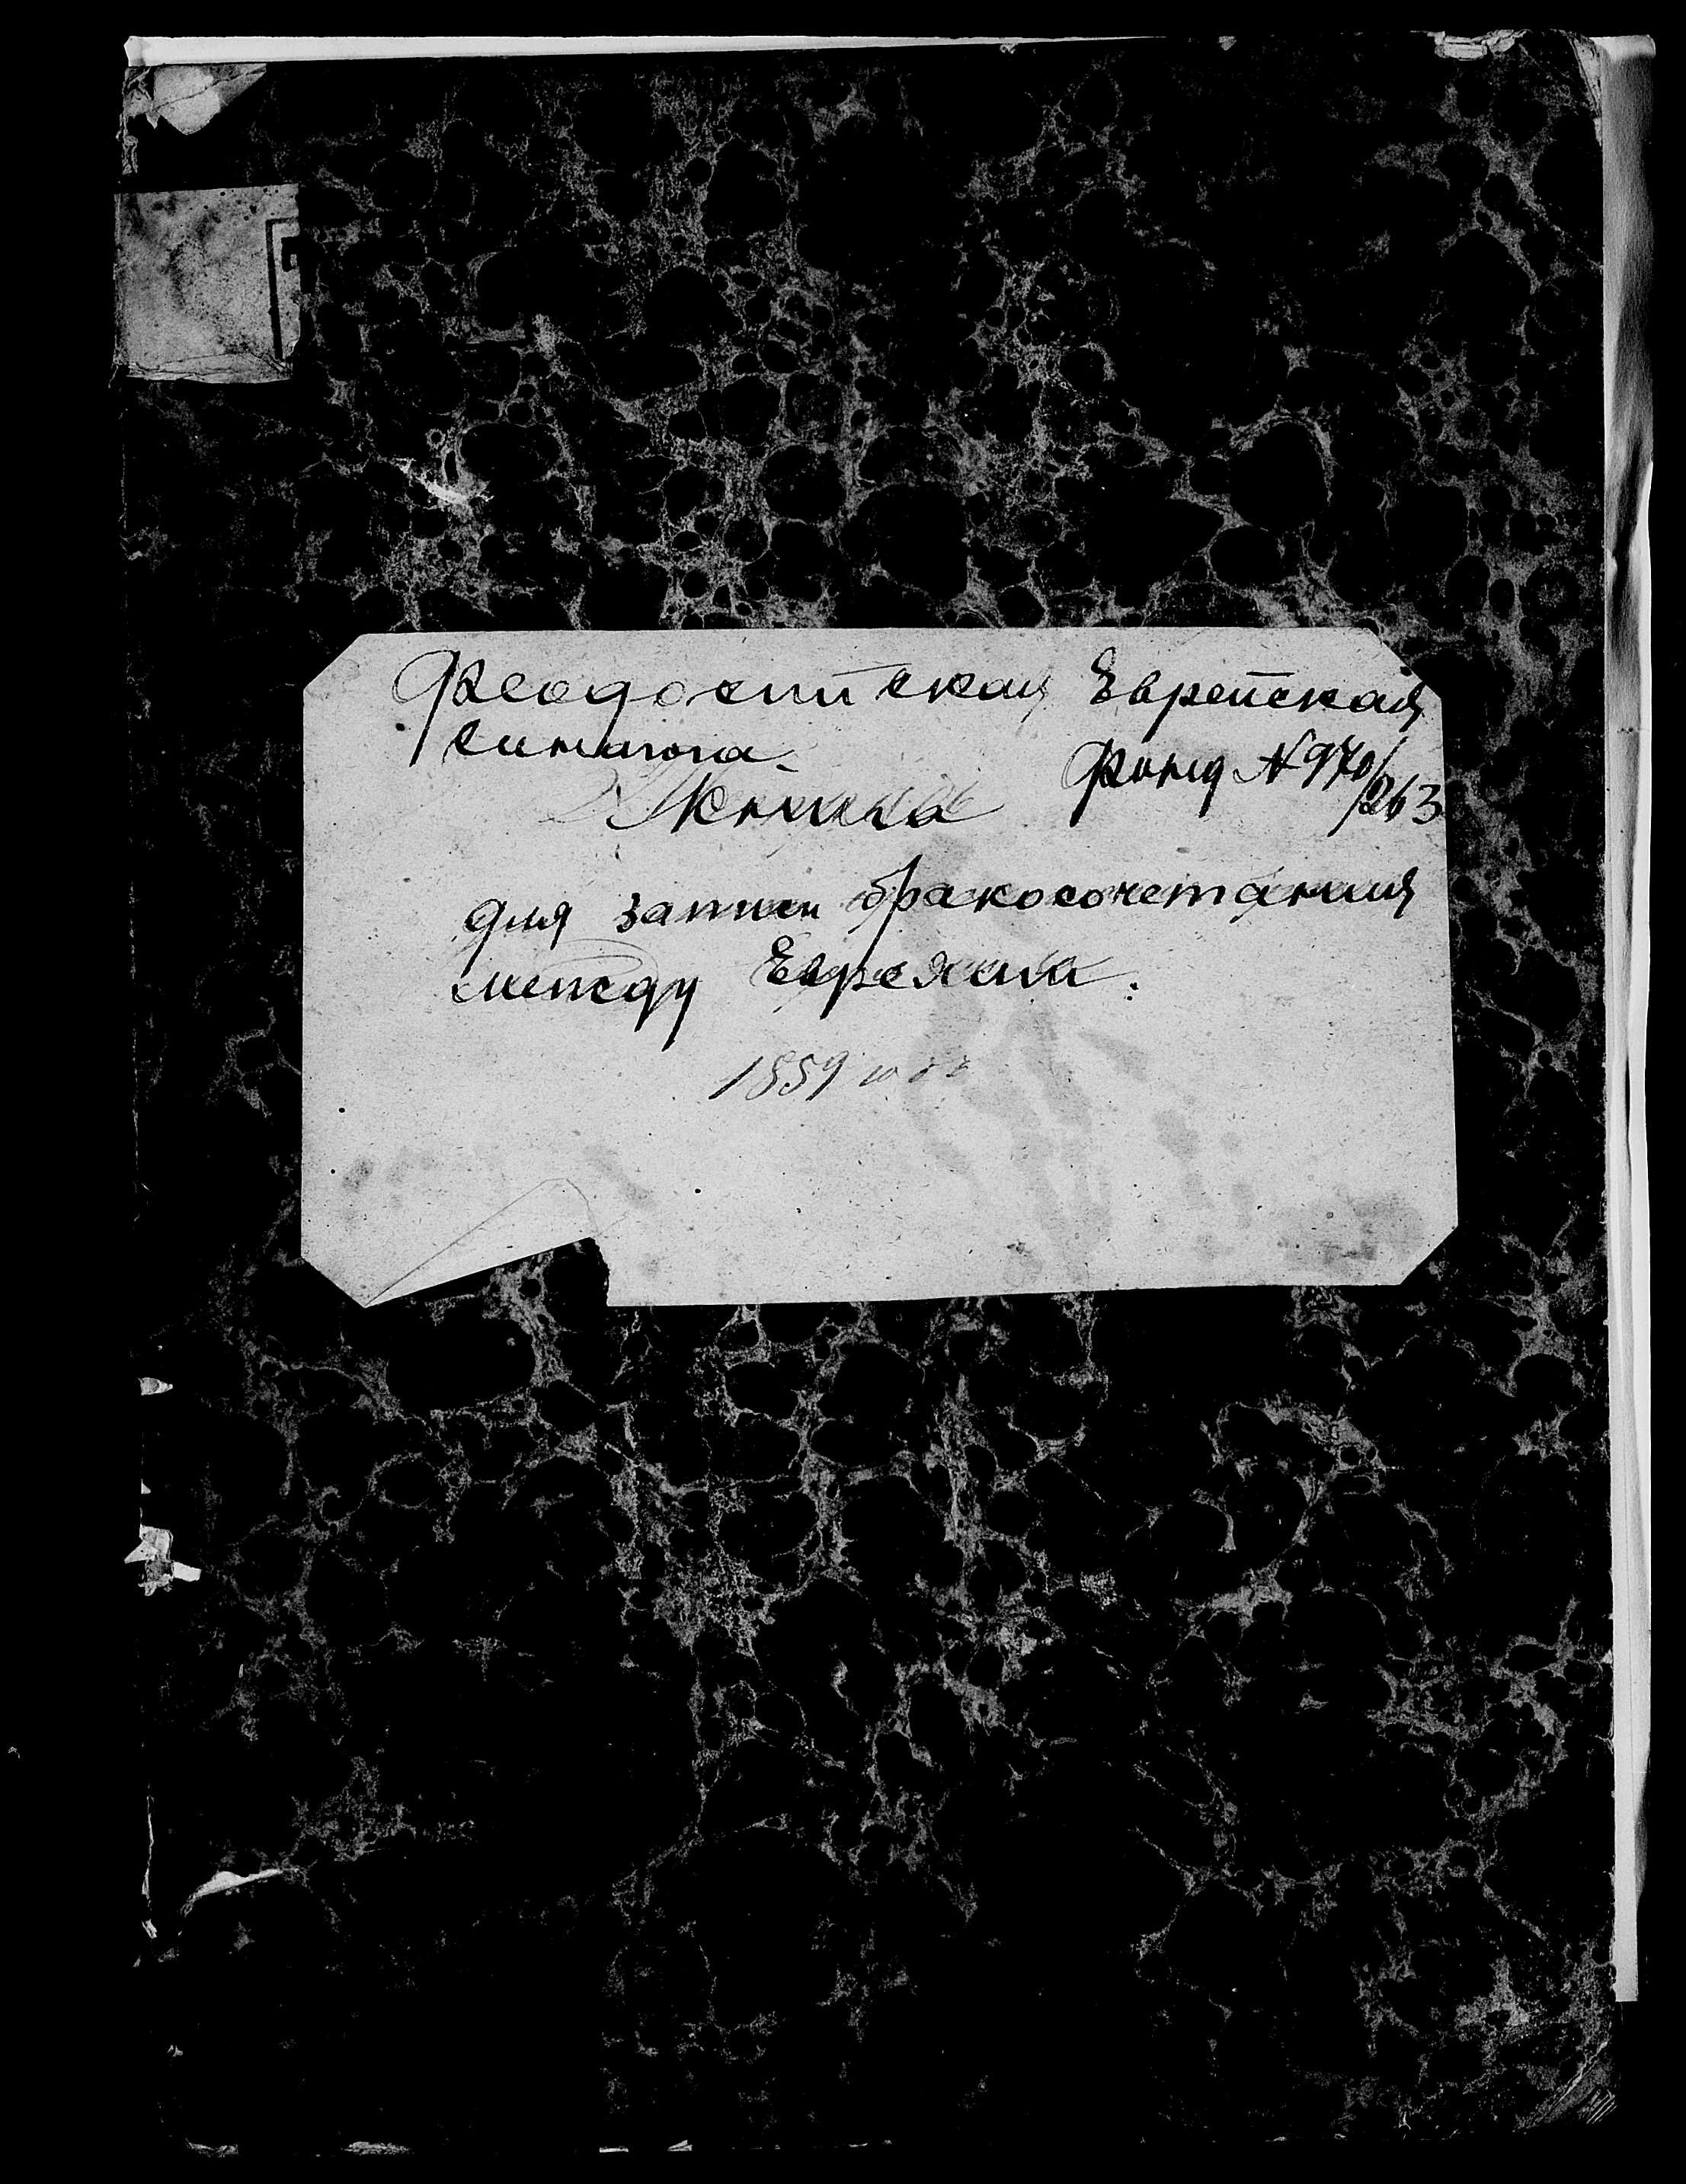 Феодосийская Еврейская
синагога.
Фонд № 970/263
Книга
для записи бракосочетания
между Евреями.
1859 год